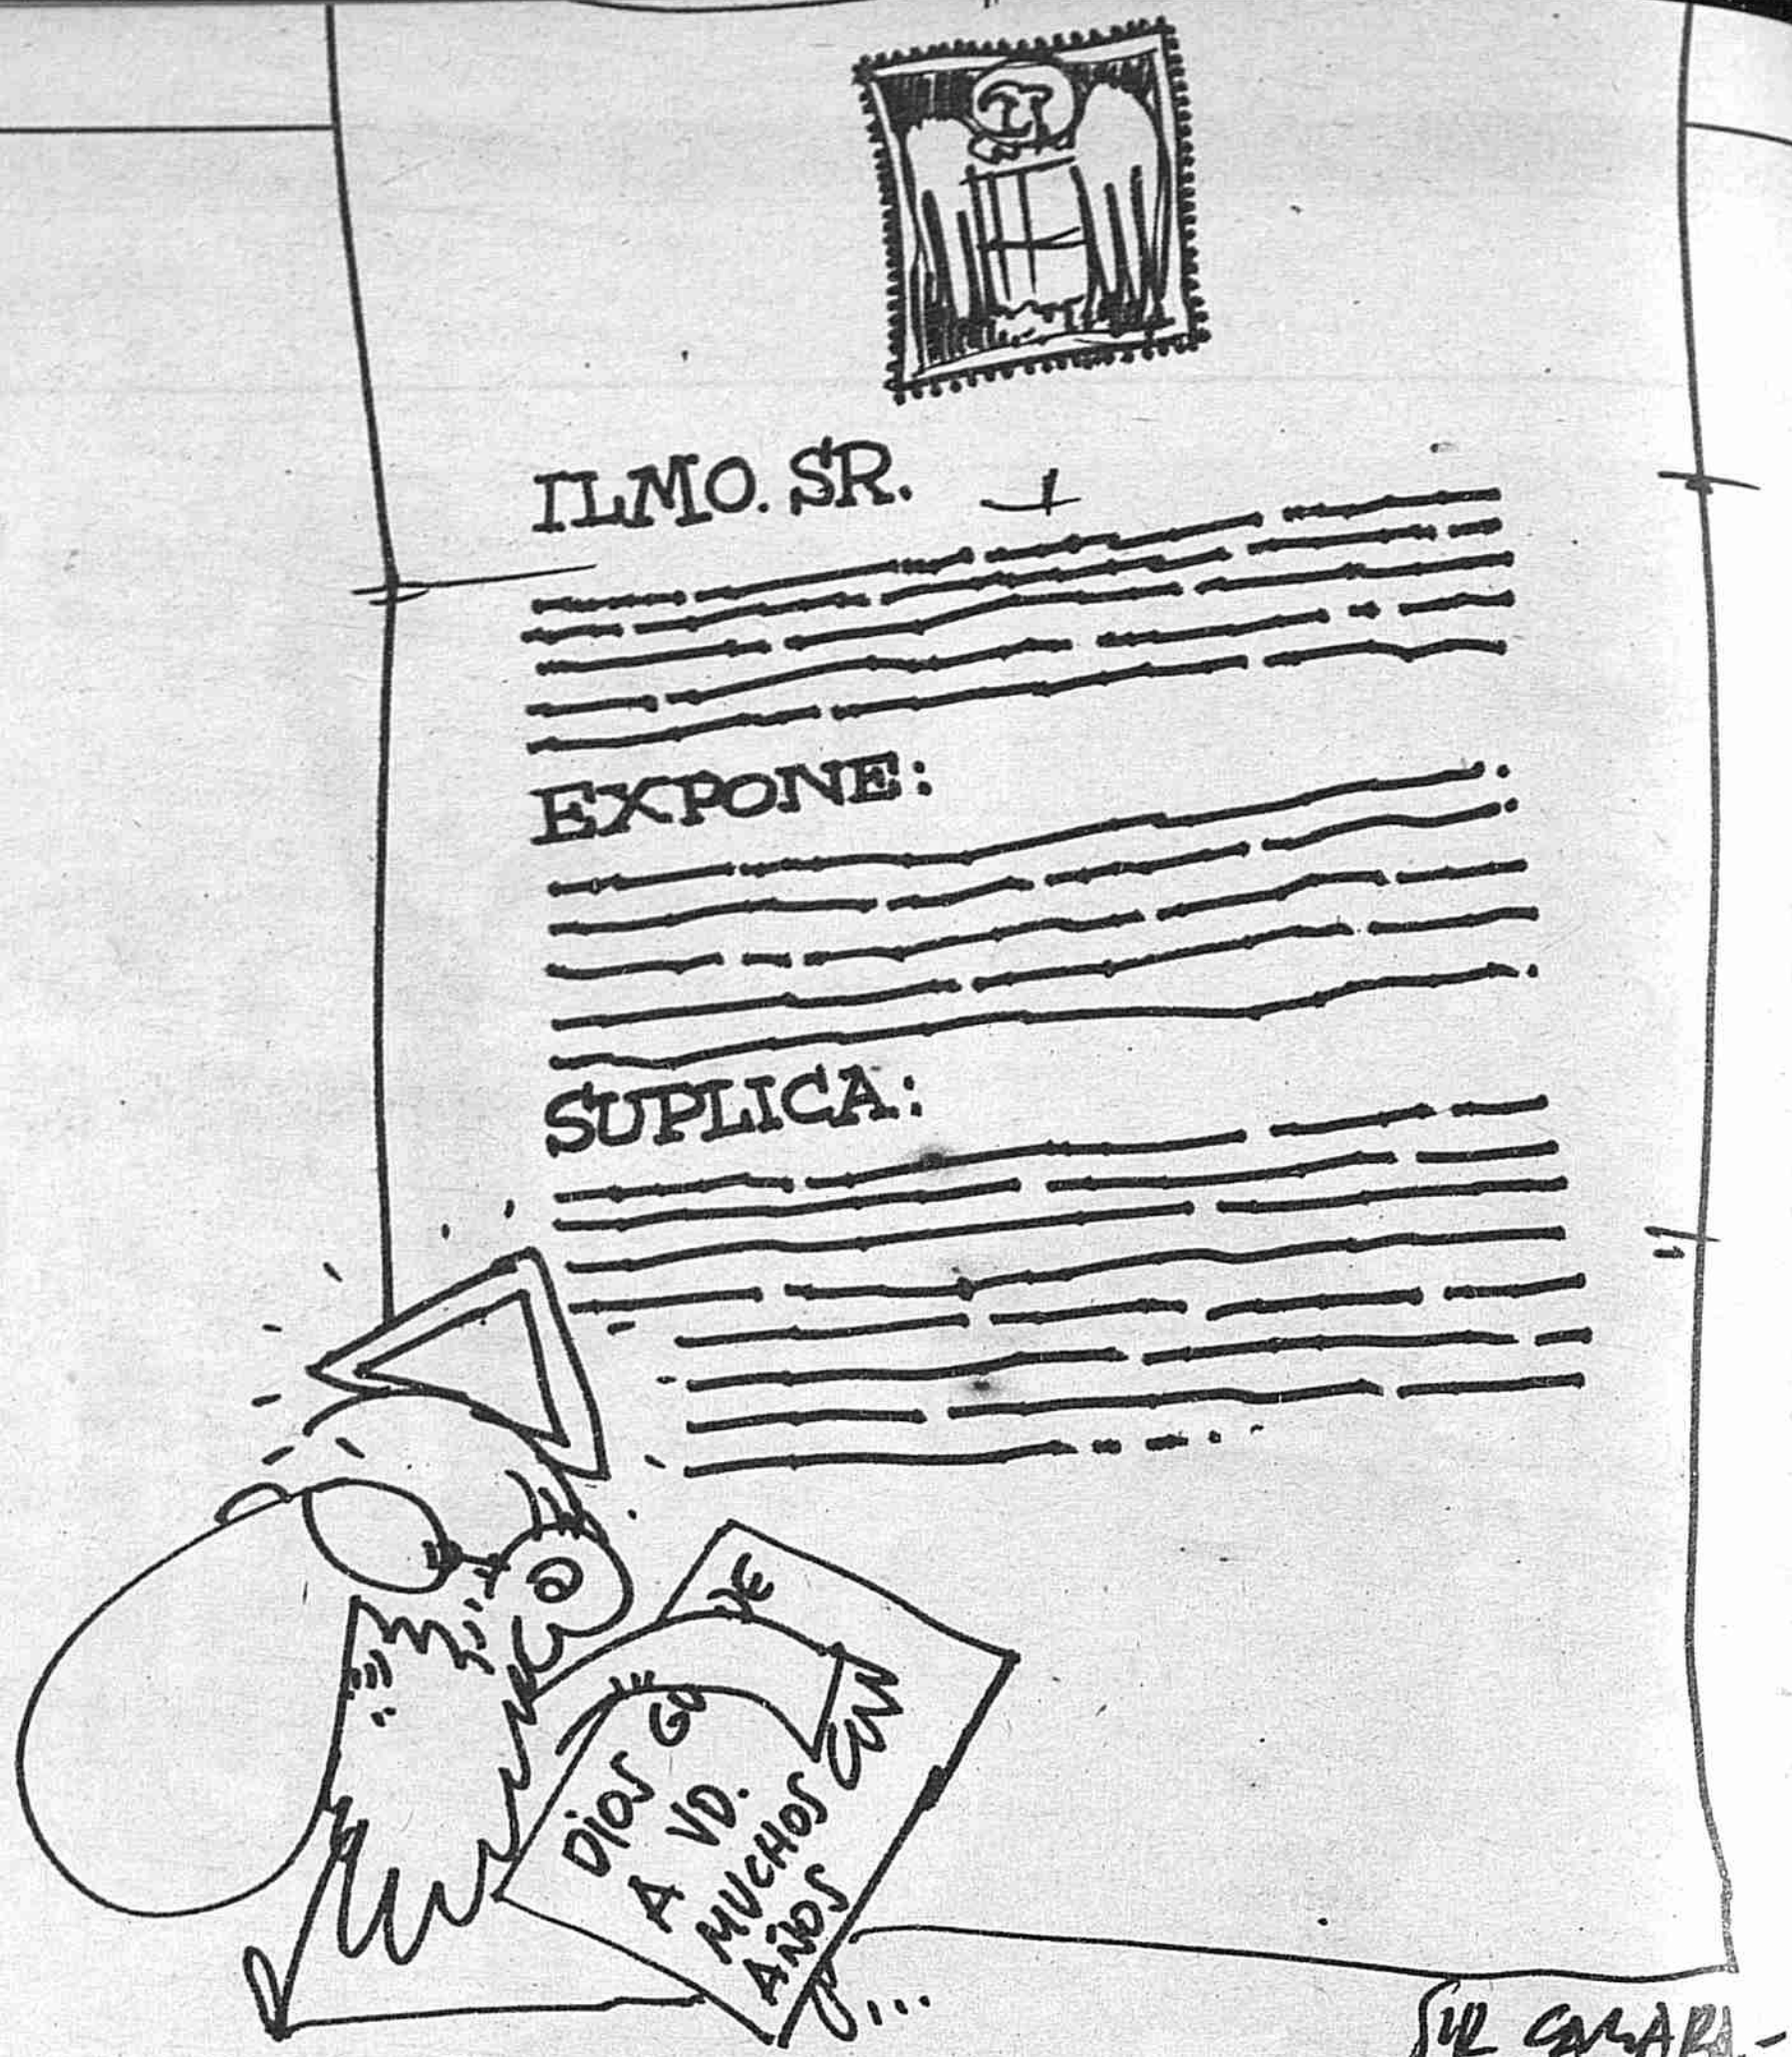 ILMO. SR.
EXPONE:
SUPLICA:
DE
DIOS GU
A VD.
MUCHOS
AÑOS
SIR CAMARA.-